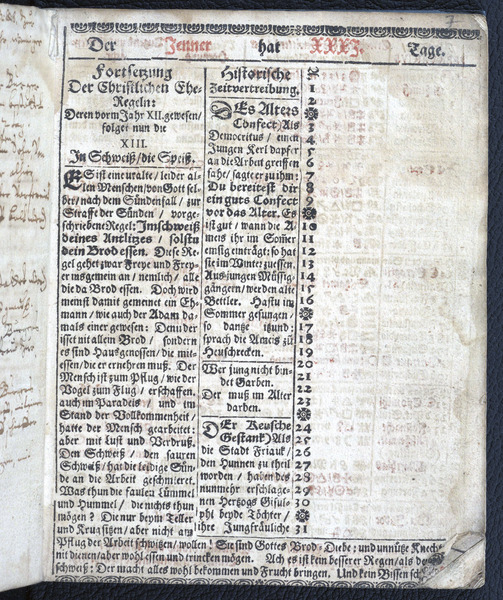 Der Jenner hat XXXI. Tage.
Fortsetzung
Der Christlichen Ehe-
Regeln:
Deren vorm Jahr XII. gewesen/
folget nun die
XIII.
In Schweiß/ die Speiß.
ES ist eine uralte/ leider al-
len Menschen/ von Gott sel-
ber/ nach dem Sündenfall/ zur
Straffe der Sünden/ vorge-
schriebene Regel: Im schweiß
deines Antlitzes/ solstu
dein Brod essen. Diese Re-
gel gehet zwar Freye und Frey-
er insgemein an/ nemlich/ alle
die da Brod essen. Doch wird
niemand damit gemeinet ein Eh-
mann/ wie auch der Adam da-
mals einer gewesen: Denn der
isset nit allein Brod/ sondern
es sind Hausgenossen/ die mit-
essen/ die er ernehren muß. Der
Mensch ist zum Pflug/ wie der
Vogel zum Flug/ erschaffen.
auch im Paradeis/ und im
Stand der Vollkommenheit/
hatte der Mensch gearbeitet:
aber mit Lust und Verdruß.
Den Schweiß/ den sauren
Schweiß/ hat die leidige Sün-
de an die Arbeit geschmieret.
Was thun die faulen Lümmel
und Hummel/ die nichts thun
mögen? Die nur beym Teller
und Krug sitzen/ aber nicht am
Pflug der Arbeit schwitzen/ wollen! Sie sind Gottes Brod-Diebe: und unnütze Knech-
nit dienen/ aber wohl essen und trincken mögen. Ach es ist kein besserer Regen/ als de
schweiß: Der macht alles wohl bekommen und Frucht bringen. Und kein Bissen sch
Historische
Zeitvertreibung.
DEs Alters
Confect. Als
Democritus/ einen
Jungen Kerl dapfer
an die Arbeit greffen
sahe/ sagte er zu ihm:
Du bereitest dir
ein guts Confect
vor das Alter. Es
ist gut/ wann die A-
meis ihr im Sommer
einsig einträgt: so hat
sie im Winter zu essen.
Aus jungen Müssig-
gängern/ werden alte
Bettler. Hastu im
Sommer gesungen/
so dantze itzund:
sprach die Ameis zu
Heuschrecken.
Wer jung nicht bin-
det Garben.
Der muß im Alter
darben.
DEr Keusche
Gestank. Als
die Stadt Friaul/
den Hunnen zu theil
worden/ haben des
nunmehr erschlage-
nen Hertzogs Gisul-
phi beyde Töchter/
ihre Jungfräuliche
1
2
3
4
5
6
7
8
9
10
11
12
13
14
15
16
17
18
19
20
21
22
23
24
25
26
27
28
29
30
31